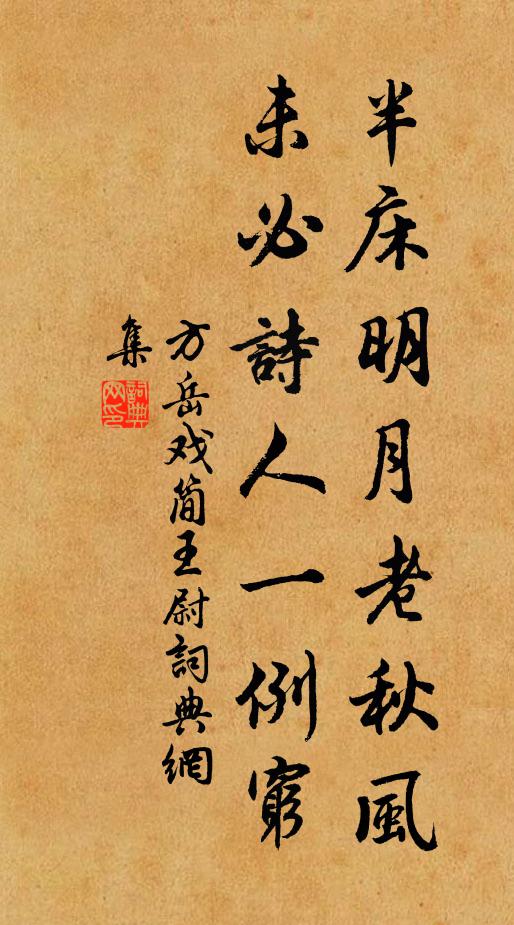 半床明月老秋風
未必詩人一例窮
方岳戏简王尉詞典網
集
詞典
网印